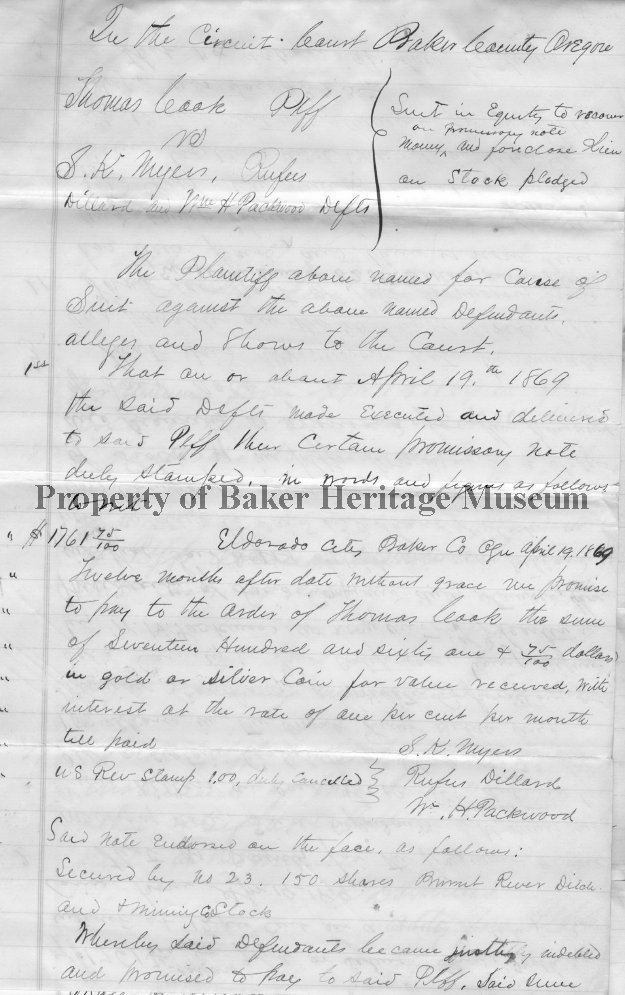 In the Circuit Court Baker County Oregon
Thomas Cook Plff
vs
S. K. Myers, Rufus
Dillard and Wm H. Packwood Defts
Suit in Equity to recover
on promissory note
money ^ and foreclose lien
on Stock pledged
The Plaintiff above named for Cause of
Suit against the above named Defendants,
alleges and Shows to the Court.
1st That on or about April 19.th 1869
the said Defts made Executed and delivered
to said Plff their Certain promissory note
duly stamped, in words and figures as follows
to wit
Property of Baker Heritage Museum
" $1761 75/100 Eldorado City Baker Co Ogn April 19, 1869
" Twelve months after date without grace we promise
" to pay to the order of Thomas Cook the sum
" of Seventeen Hundred and sixty one & 75/100 dollars
" in gold or silver Coin for value received, with
" interest at the rate of one per cent per month
" till paid
S. K. Myers
US Rev Stamp 1.00, duly cancelled } Rufus Dillard
Wm. H. Packwood
Said note Endorsed on the face, as follows:
Secured by no 23. 150 Shares Burnt River Ditch
and & Mining Co Stock
Whereby said Defendants became justly indebted
and promised to pay to said Plff. Said sum